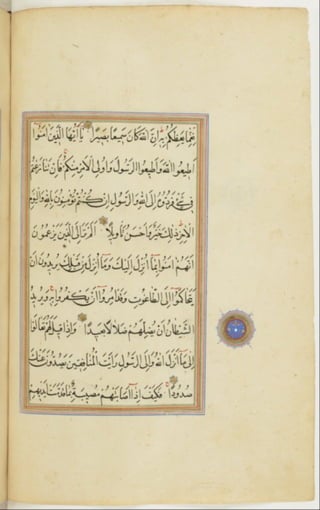 نعما يعظكم به إن الله كان سميعا بصيرا يا أيها الذين آمنوا
أطيعوا الله وأطيعوا الرسول وأولى الأمر منكم فإن تنازعتم
في شئ فردوه إلى الله والرسول إن كنتم تؤمنون بالله واليوم
الآخر ذلك خير وأحسن تأويلا ألم تر إلى الذين يزعمون
أنهم آمنوا بما أنزل إليك وما أنزل من قبلك يريدون أن
يتحاكموا إلى الطاغوت وقد أمروا أن يكفروا به ويريد
الشيطان أن يضلهم ضلالا بعيدا وإذا قيل لهم تعالوا
إلى ما أنزل الله وإلى الرسول رأيت المنافقين يصدون عنك
صدودا فكيف إذا أصابتهم مصيبة بما قدمت أيديهم